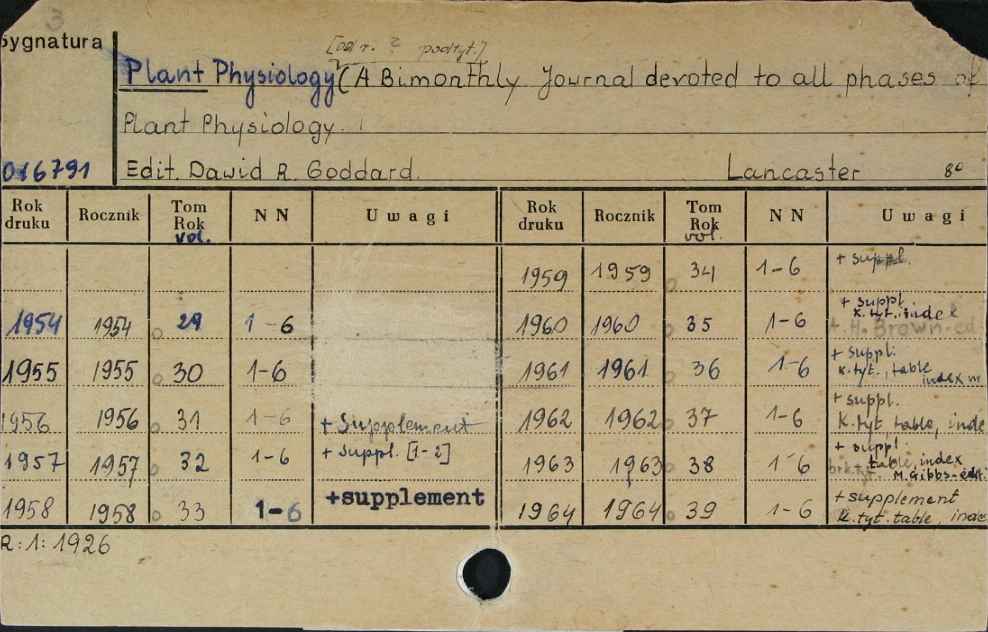 Sygnatura
[od r. ? podtyt.]
Plant Physiology (A Bimonthly Journal devoted to all phases of
Plant Physiology.
016791 Edit. Dawid R. Goddard. Lancaster 8º
Rok druku Rocznik Tom Rok vol. N N Uwagi Rok druku Rocznik Tom Rok vol. N N Uwagi
1959 1959 34 1-6 + suppl.
1954 1954 29 1-6 1960 1960 35 1-6 + suppl. k. tyt. index
+ H. Brown-ed
1955 1955 30 1-6 1961 1961 36 1-6 + suppl. k. tyt., table index
1956 1956 31 1-6 + Supplement 1962 1962 37 1-6 + suppl. k. tyt. table, inde
1957 1957 32 1-6 + Suppl. [1-2] 1963 1963 38 1-6 + suppl. table, index
M. Gibbs-edit.
1958 1958 33 1-6 +supplement 1964 1964 39 1-6 + supplement k. tyt. table, inde
R: 1: 1926